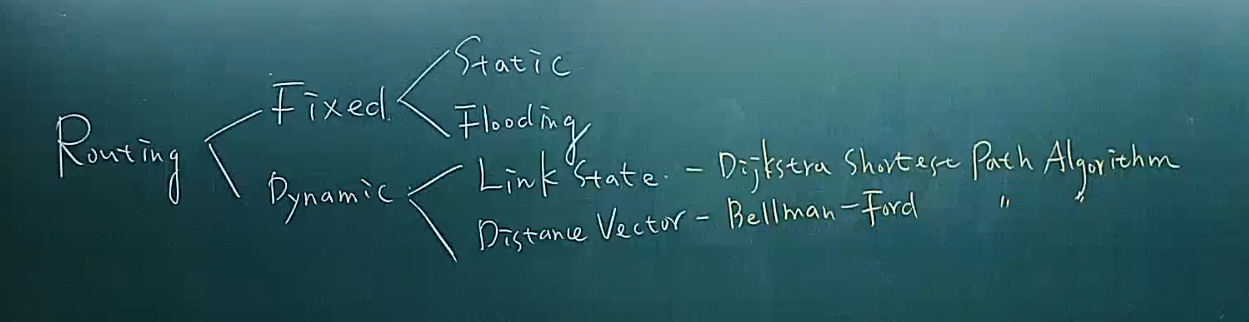 Routing
Fixed
Static
Flooding
Dynamic
Link State. - Dijkstra Shortest Path Algorithm
Distance Vector - Bellman-Ford " "